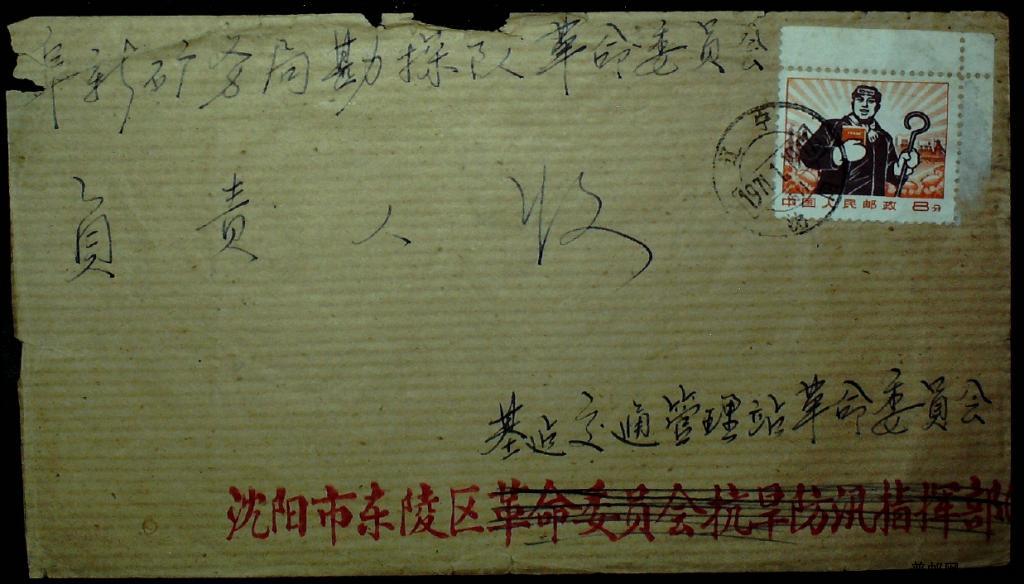 阜新矿务局勘探队革命委员会
中国人民邮政 8分
1971
負责人 收
交通管理站革命委員会
沈阳市东陵区革命委员会抗旱防汛指挥部